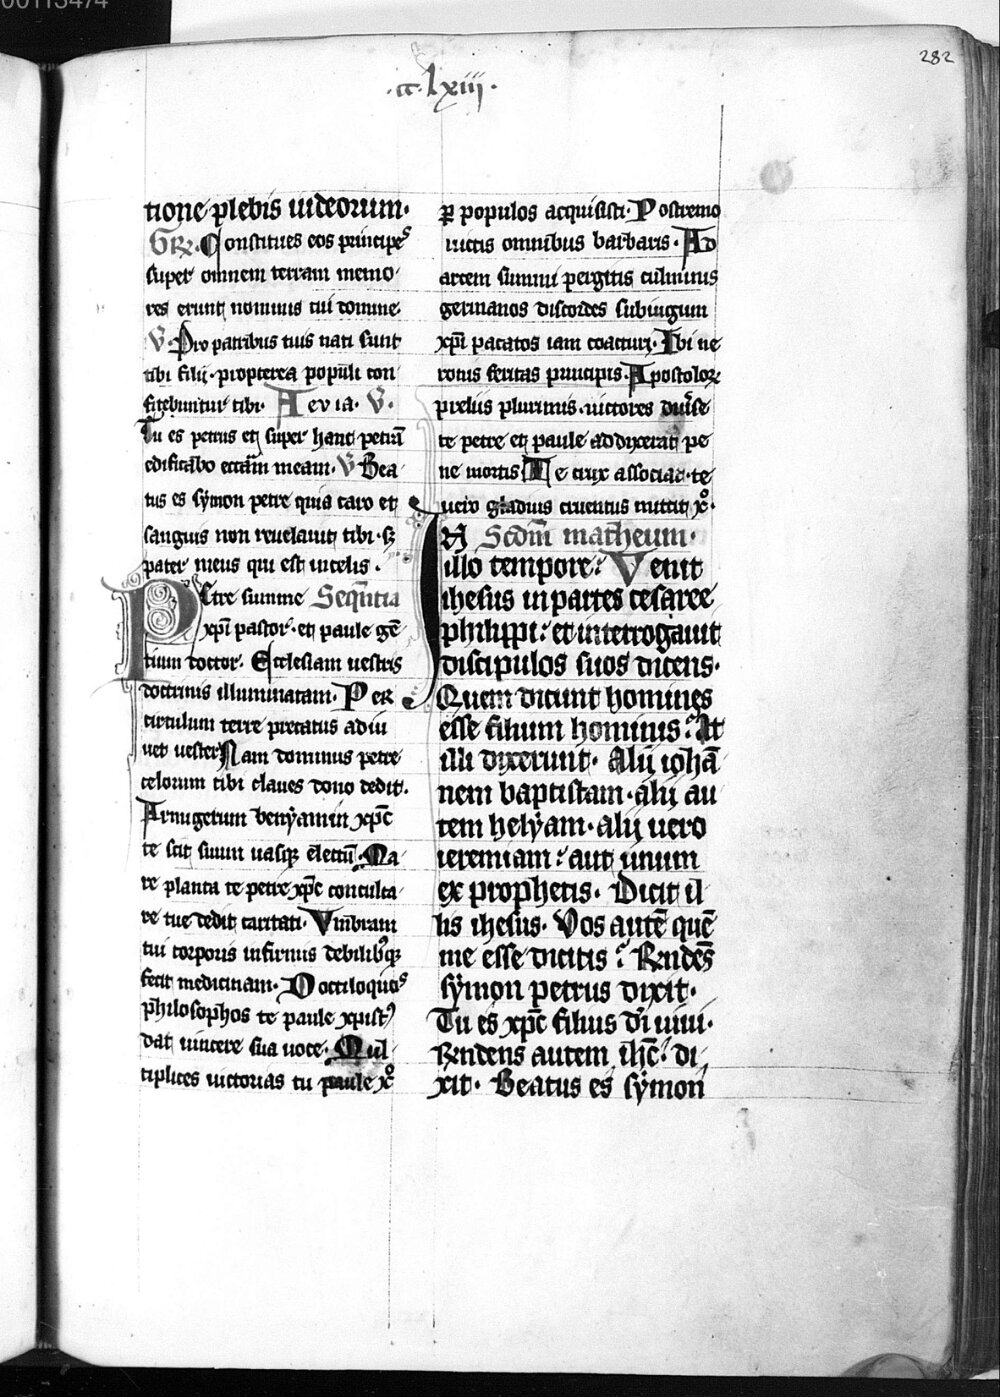 00113474
282
.cc.lxiii.
tione plebis iudeorum.
GR. Constitues eos principes
super omnem terram memo
res erunt nominis tui domine.
V. Pro patribus tuis nati sunt
tibi filii. propterea populi con
fitebuntur tibi. Aevia. V.
Tu es petrus et super hanc petrā
edificabo eccłam meam. V Bea
tus es symon petre quia caro et
sanguis non reuelauit tibi. sꝫ
pater meus qui est in celis.
Petre summe Sequētia
xpī pastor. et paule gē
tium doctor. Ecclesiam uestris
doctrinis illuminatam. Per
circulum terre precatus adiu
uet uester Nam dominus petre
celorum tibi claues dono dedit.
Armigerum benyamin xpc̄
te scit suum uasqꝫ electū. Ma
re planta te petre xpc̄ conculca
re tue dedit caritati. Vmbram
tui corporis infirmis debilibꝰqꝫ
fecit medicinam. Doctiloquos
philosophos te paule xpistꝰ
dat uincere sua uoce. Mul
tiplices uictorias tu paule xº
ꝑ populos acquisisti. Postremo
uictis omnibus barbaris. Ad
arcem summi pergitis culminis
germanos discordes sub iugum
xpī pacatos iam coacturi. Ibi ne
ronis feritas principis. Apostoloꝝ
preliis plurimis uictores diuīse
te petre et paule addixerat pe
ne mortis Te crux associat. te
uero gladius cruentus mittit xº.
IN Scdm̄ matheum.
illo tempore: Venit
ihesus in partes cesaree
philippi: et interrogauit
discipulos suos dicens.
Quem dicunt homines
esse filium hominis? At
illi dixerunt. Alij iohā
nem baptistam. alij au
tem helyam. alij uero
ieremiam: aut unum
ex prophetis. Dicit il
lis ihesus. Vos autē quē
me esse dicitis? Rn̄dēs
symon petrus dixit.
Tu es xpc̄ filius dī uiui.
Rn̄dens autem ihc̄: di
xit. Beatus es symon